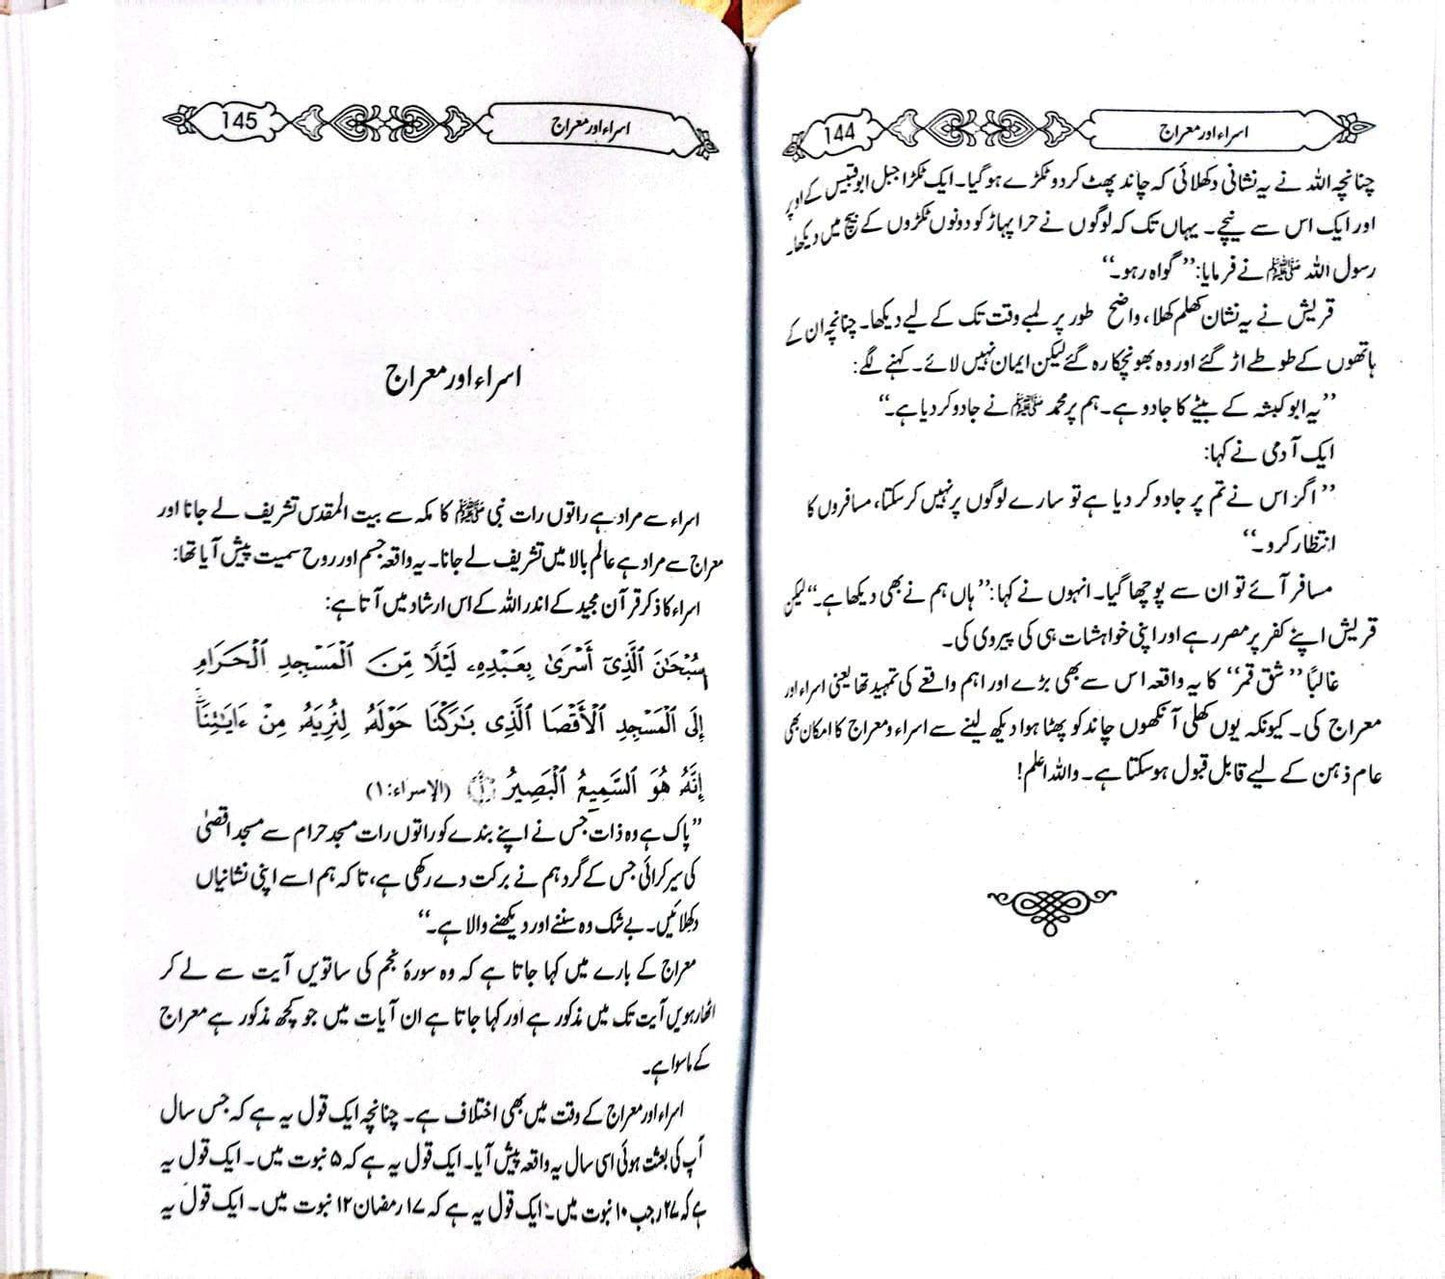 اسراء اور معراج 144
چنانچہ اللہ نے یہ نشانی دکھلائی کہ چاند پھٹ کر دو ٹکڑے ہو گیا۔ ایک ٹکڑا جبل ابو قبیس کے اوپر
اور ایک اس سے نیچے۔ یہاں تک کہ لوگوں نے حرا پہاڑ کو دونوں ٹکڑوں کے بیچ میں دیکھا۔
رسول اللہ ﷺ نے فرمایا: ”گواہ رہو۔“
قریش نے یہ نشان کھلم کھلا، واضح طور پر لمبے وقت تک کے لیے دیکھا۔ چنانچہ ان کے
ہاتھوں کے طوطے اڑ گئے اور وہ بھونچکا رہ گئے لیکن ایمان نہیں لائے۔ کہنے لگے:
”یہ ابو کبشہ کے بیٹے کا جادو ہے۔ ہم پر محمد ﷺ نے جادو کر دیا ہے۔“
ایک آدمی نے کہا:
”اگر اس نے تم پر جادو کر دیا ہے تو سارے لوگوں پر نہیں کر سکتا، مسافروں کا
انتظار کرو۔“
مسافر آئے تو ان سے پوچھا گیا۔ انہوں نے کہا: ”ہاں ہم نے بھی دیکھا ہے۔“ لیکن
قریش اپنے کفر پر مصر رہے اور اپنی خواہشات ہی کی پیروی کی۔
غالباً ”شق قمر“ کا یہ واقعہ اس سے بھی بڑے اور اہم واقعے کی تمہید تھا یعنی اسراء اور
معراج کی۔ کیونکہ یوں کھلی آنکھوں چاند کو پھٹا ہوا دیکھ لینے سے اسراء و معراج کا امکان بھی
عام ذہن کے لیے قابل قبول ہو سکتا ہے۔ واللہ اعلم!
اسراء اور معراج 145
اسراء اور معراج
اسراء سے مراد ہے راتوں رات نبی ﷺ کا مکہ سے بیت المقدس تشریف لے جانا اور
معراج سے مراد ہے عالم بالا میں تشریف لے جانا۔ یہ واقعہ جسم اور روح سمیت پیش آیا تھا:
اسراء کا ذکر قرآن مجید کے اندر اللہ کے اس ارشاد میں آتا ہے:
سُبْحَٰنَ ٱلَّذِىٓ أَسْرَىٰ بِعَبْدِهِۦ لَيْلًا مِّنَ ٱلْمَسْجِدِ ٱلْحَرَامِ
إِلَى ٱلْمَسْجِدِ ٱلْأَقْصَا ٱلَّذِى بَٰرَكْنَا حَوْلَهُۥ لِنُرِيَهُۥ مِنْ ءَايَٰتِنَآ
إِنَّهُۥ هُوَ ٱلسَّمِيعُ ٱلْبَصِيرُ ۝١ (الإسراء:١)
”پاک ہے وہ ذات جس نے اپنے بندے کو راتوں رات مسجد حرام سے مسجد اقصیٰ
کی سیر کرائی جس کے گرد ہم نے برکت دے رکھی ہے، تاکہ ہم اسے اپنی نشانیاں
دکھلائیں۔ بے شک وہ سننے اور دیکھنے والا ہے۔“
معراج کے بارے میں کہا جاتا ہے کہ وہ سورۂ نجم کی ساتویں آیت سے لے کر
اٹھارہویں آیت تک میں مذکور ہے اور کہا جاتا ہے ان آیات میں جو کچھ مذکور ہے معراج
کے ماسوا ہے۔
اسراء اور معراج کے وقت میں بھی اختلاف ہے۔ چنانچہ ایک قول یہ ہے کہ جس سال
آپ کی بعثت ہوئی اسی سال یہ واقعہ پیش آیا۔ ایک قول یہ ہے کہ ۵ نبوت میں۔ ایک قول یہ
ہے کہ ۲۷ رجب ۱۰ نبوت میں۔ ایک قول یہ ہے کہ ۱۷ رمضان ۱۲ نبوت میں۔ ایک قول یہ